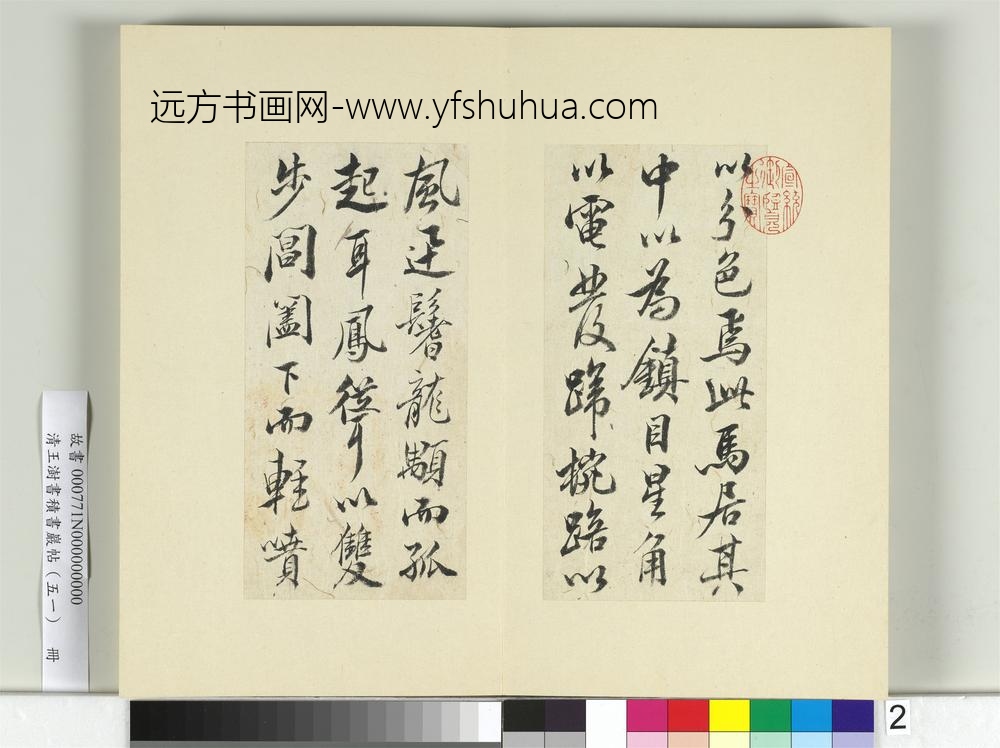 远方书画网-www.yfshuhua.com
以分色焉此馬居其
中以為鎮目星角
以電發蹄椀踣以
風迅鬐龍顒而孤
起耳鳳聳以雙
步閶闔下而輕噴
宣統御覽之寶
故書 000771N000000000
清王澍書積書巖帖(五一) 冊
2